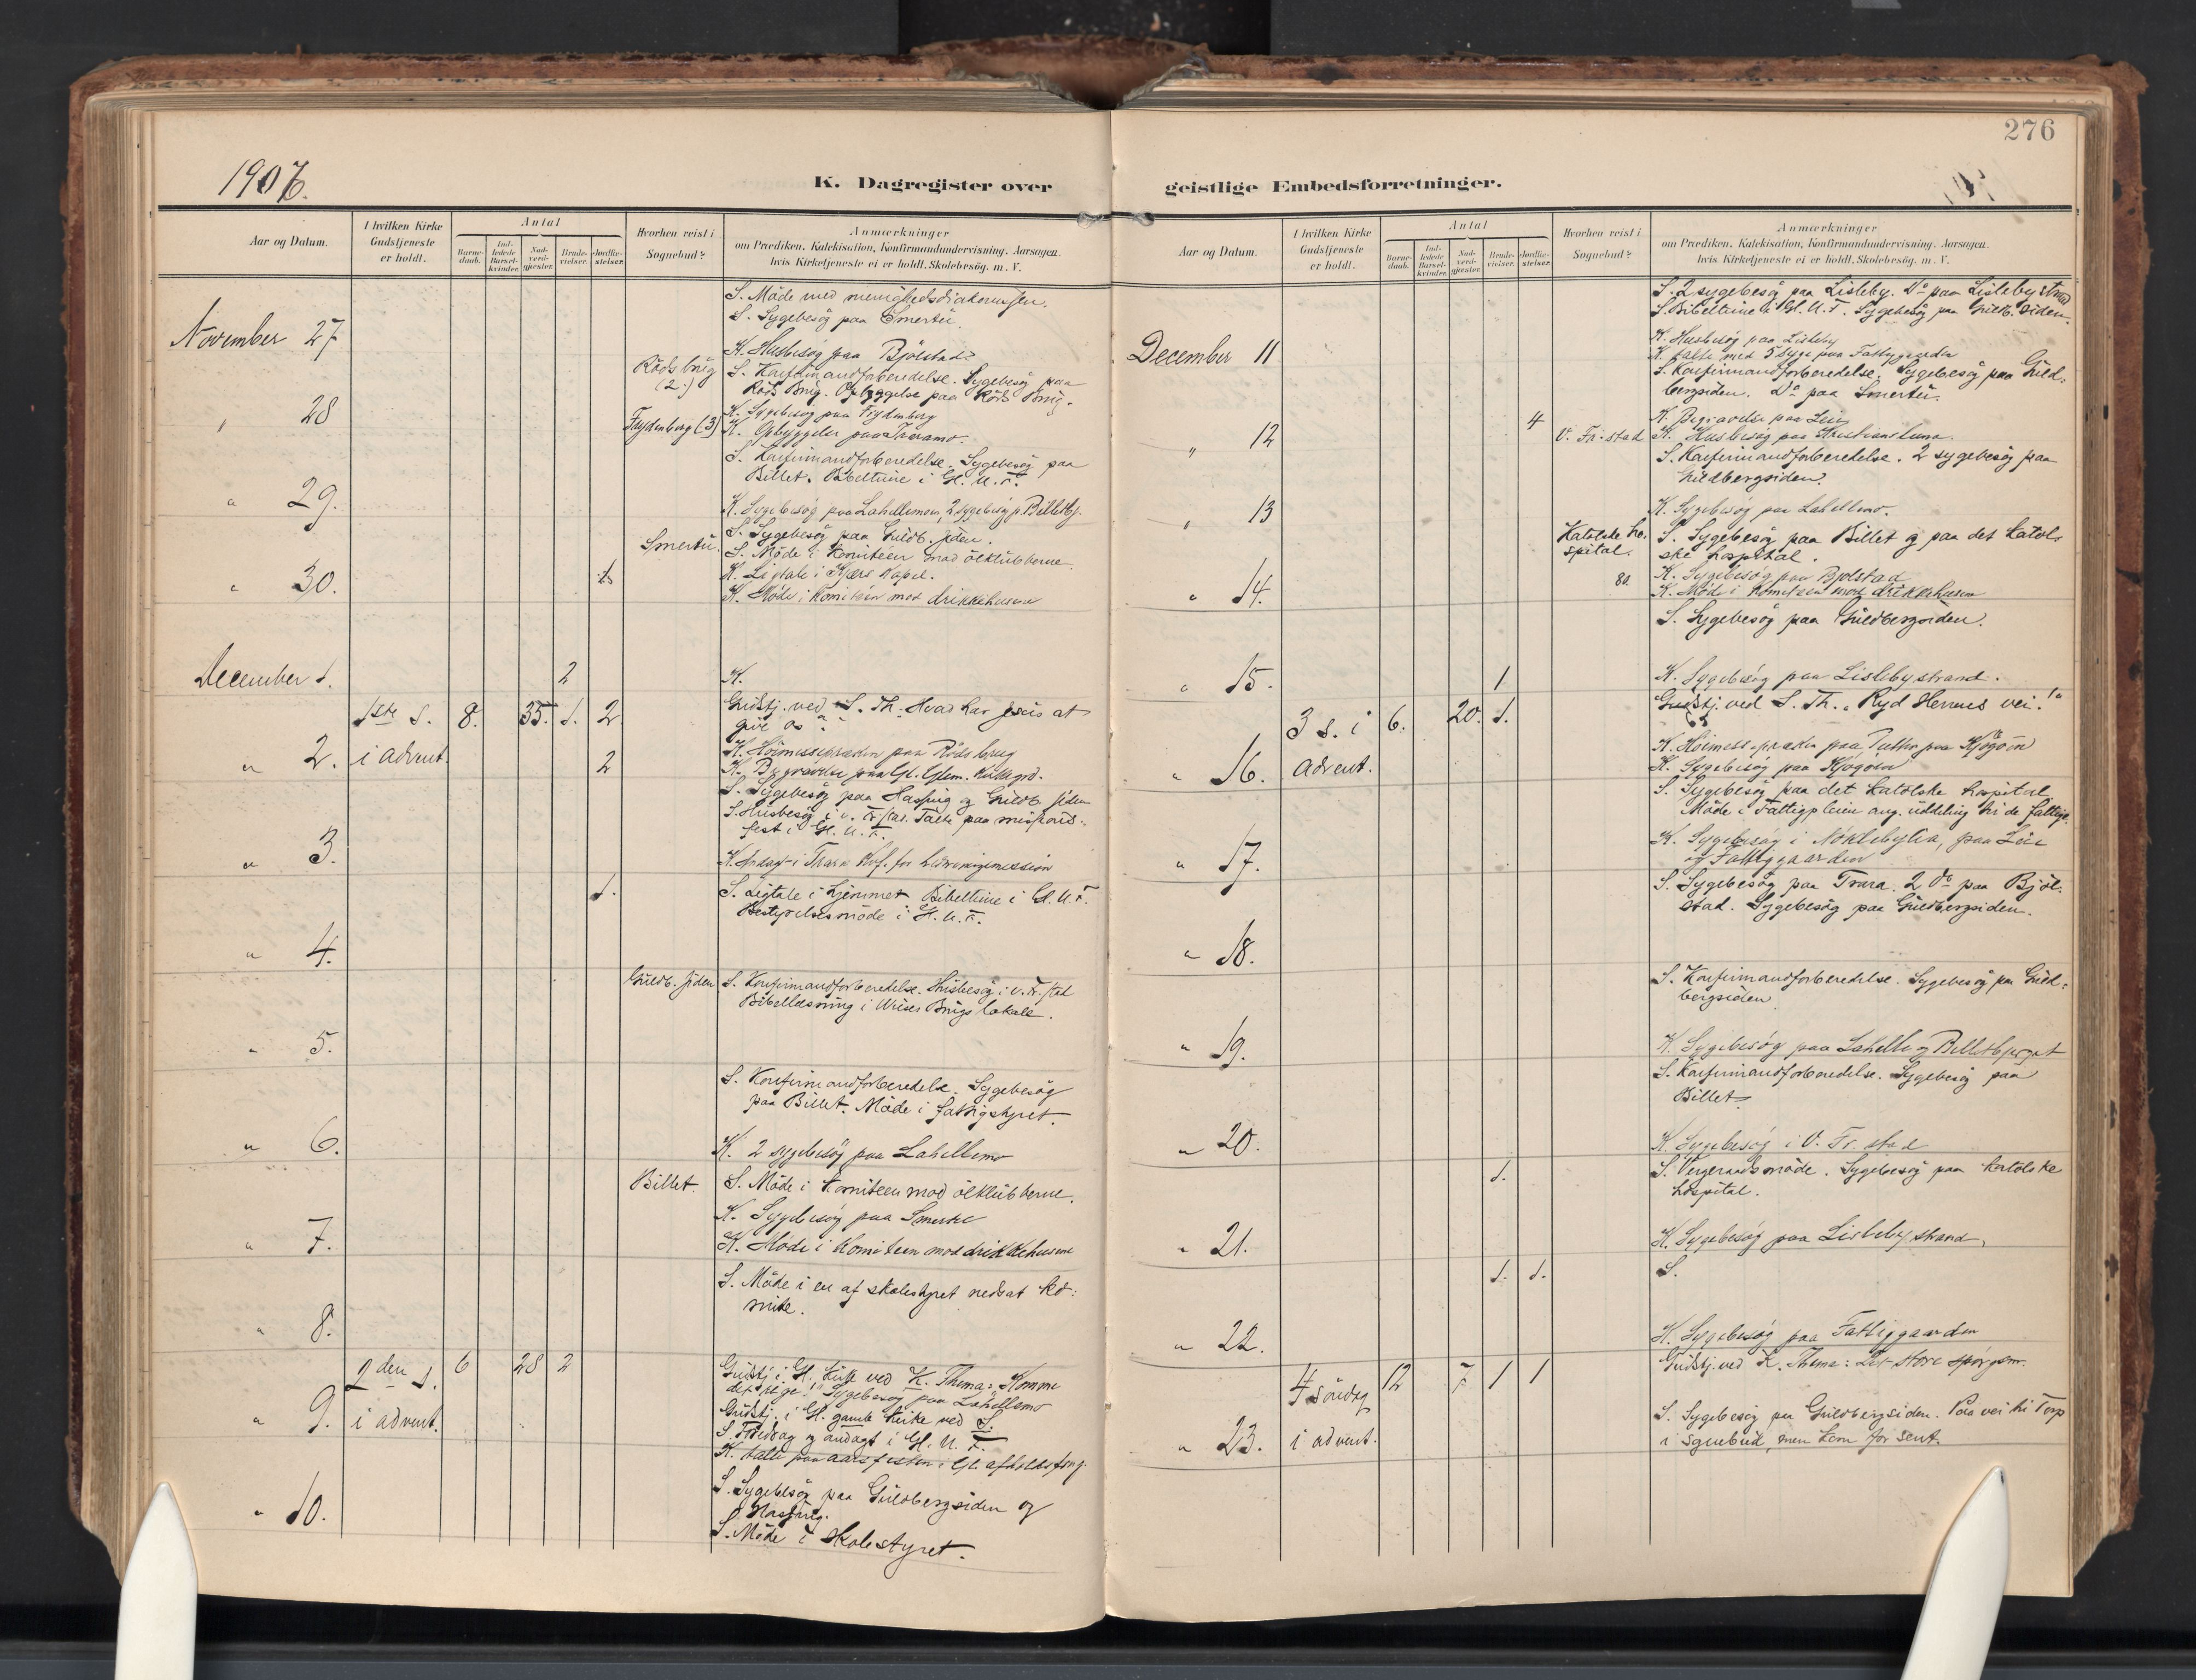 276
1906.
K. Dagregister over
geistlige Embedsforretninger.
Aar og Datum.
I hvilken Kirke
Gudstjeneste
er holdt.
Antal
Barne-
daab.
Ind-
ledede
Barsel-
kvinder.
Nad-
verd-
gjester.
Brude-
vielser.
Jordfæ-
stelser.
Hvorhen reist i
Sognebud?
Anmærkninger
om Prædiken, Katekisation, Konfirmandundervisning. Aarsagen,
hvis Kirketjeneste ei er holdt. Skolebesög. m. V.
S. Möde med menighedsdiakonissen.
S. Sygebesög paa Smertu.
November 27
K. Husbesög paa Bjölstad
Röds brug
(2.)
S. Konfirmandforberedelse. Sygebesög paa
Röds Brug. Opbyggelse paa Röds Brug.
" 28
Frydenberg (3)
K. Sygebesög paa Frydenberg
K. Opbyggelse paa Traramo.
S. Konfirmandforberedelse. Sygebesög paa
Billet. Bibeltime i Gl. U. F.
" 29.
K. Sygebesög paa Lahellemoen, 2 sygebesög p. Billetbj.
Smertu.
S. Sygebesög paa Guldb. siden.
S. Möde i Komiteen mod ölklubberne.
" 30.
1
K. Ligtale i Kjærs Kapel.
K. Möde i komiteen mod drikkehusene
December 1.
2
K.
1ste s. 8. 35. 1. 2
Gudstj. ved S. Th. "Hvad har Jesus at
give os"
" 2. i advent.
K. Höimesseprædiken paa Röds brug
2
K. Begravelse paa Gl. Glem. Kirkegrd.
S. Sygebesög paa Hassing og Guldb. siden
S. Husbesög i v. Fr.stad. Talte paa missions-
fest i Gl. U. F.
" 3.
K. Andagt i Trara for
1.
S. Ligtale i hjemmet. Bibeltime i Gl. U. F.
Bestyrelsesmöde i Gl. U. F.
" 4.
Guldb. siden
S. Konfirmandforberedelse. Husbesög i v. Fr. stad
Bibellæsning i Wieses Brugs lokale.
" 5.
S. Konfirmandforberedelse. Sygebesög
paa Billet. Möde i fattigstyret.
" 6.
K. 2 sygebesög paa Lahellemo
Billet.
S. Möde i komiteen mod ölklubberne.
K. Sygebesög paa Smertu
" 7.
K. Möde i komiteen mod drikkehusene
S. Möde i en af skolestyret nedsat ko-
mite.
" 8.
2den s. 6 28 2
Gudstj. i Gl. kirke ved K. Thema: "Komme
dit rige!" Sygebesög paa Lahellemo
" 9. i advent.
Gudstj. i Gl. gamle kirke ved S.
S. Foredrag og andagt i Gl. U. F.
K. talte paa aarsfesten i Gl. afholdsforg.
S. Sygebesög paa Guldbergsiden og
" 10.
S. Möde i Skolestyret.
Aar og Datum.
I hvilken Kirke
Gudstjeneste
er holdt.
Antal
Barne-
daab.
Ind-
ledede
Barsel-
kvinder.
Nad-
verd-
gjester.
Brude-
vielser.
Jordfæ-
stelser.
Hvorhen reist i
Sognebud?
Anmærkninger
om Prædiken, Katekisation, Konfirmandundervisning. Aarsagen,
hvis Kirketjeneste ei er holdt. Skolebesög. m. V.
S. 2 sygebesög paa Lisleby. Do paa Lislebystrand
S. Bibeltime i Gl. U. F. Sygebesög paa Guldb. siden.
December 11
K. Husbesög paa Lisleby
K. talte med 5 syge paa Fattiggaarden
S. Konfirmandforberedelse. Sygebesög paa Guld-
bergsiden. Do paa Smertu.
4
K. Begravelse paa Leie
" 12
V. Fr. stad
K. Husbesög paa Kristianslund.
S. Konfirmandforberedelse. 2 sygebesög paa
Guldbergsiden.
" 13
K. Sygebesög paa Lahellemo.
Katolske ho-
spital.
S. Sygebesög paa Billet og paa det katol-
ske hospital.
80.
K. Sygebesög paa Bjolstad
" 14.
K. Möde i komiteen mod drikkehusene
S. Sygebesög paa Guldbergsiden.
" 15.
1
K. Sygebesög paa Lislebystrand.
3 s. i 6. 20. 1.
Gudstj. ved S. Th. "Ryd Herrens vei!"
" 16. advent.
K. Höimesseprædiken paa
K. Sygebesög paa
S. Sygebesög paa det katolske hospital
Möde i Fattigpleien ang. uddeling til de fattige.
" 17.
K. Sygebesög i Nöklebylia, paa Leie
og Fattiggaarden
S. Sygebesög paa Trara. 2 do paa Bjöl-
stad. Sygebesög paa Guldbergsiden.
" 18.
S. Konfirmandforberedelse. Sygebesög paa Guld-
bergsiden
" 19.
K. Sygebesög paa Lahelle og Billetbjerget
S. Konfirmandforberedelse. Sygebesög paa
Billet.
" 20.
K. Sygebesög i V. Fr. stad
1.
S. Vergeraadsmöde. Sygebesög paa katolske
hospital.
" 21.
K. Sygebesög paa Lislebystrand.
1. 1.
S.
" 22.
K. Sygebesög paa Fattiggaarden
4 söndag 12 7 1 1
Gudstj. ved K. Thema: Det store spörgsm.
" 23. i advent.
S. Sygebesög paa Guldbergsiden. Paa vei til Torp
i sognebud, men kom for sent.